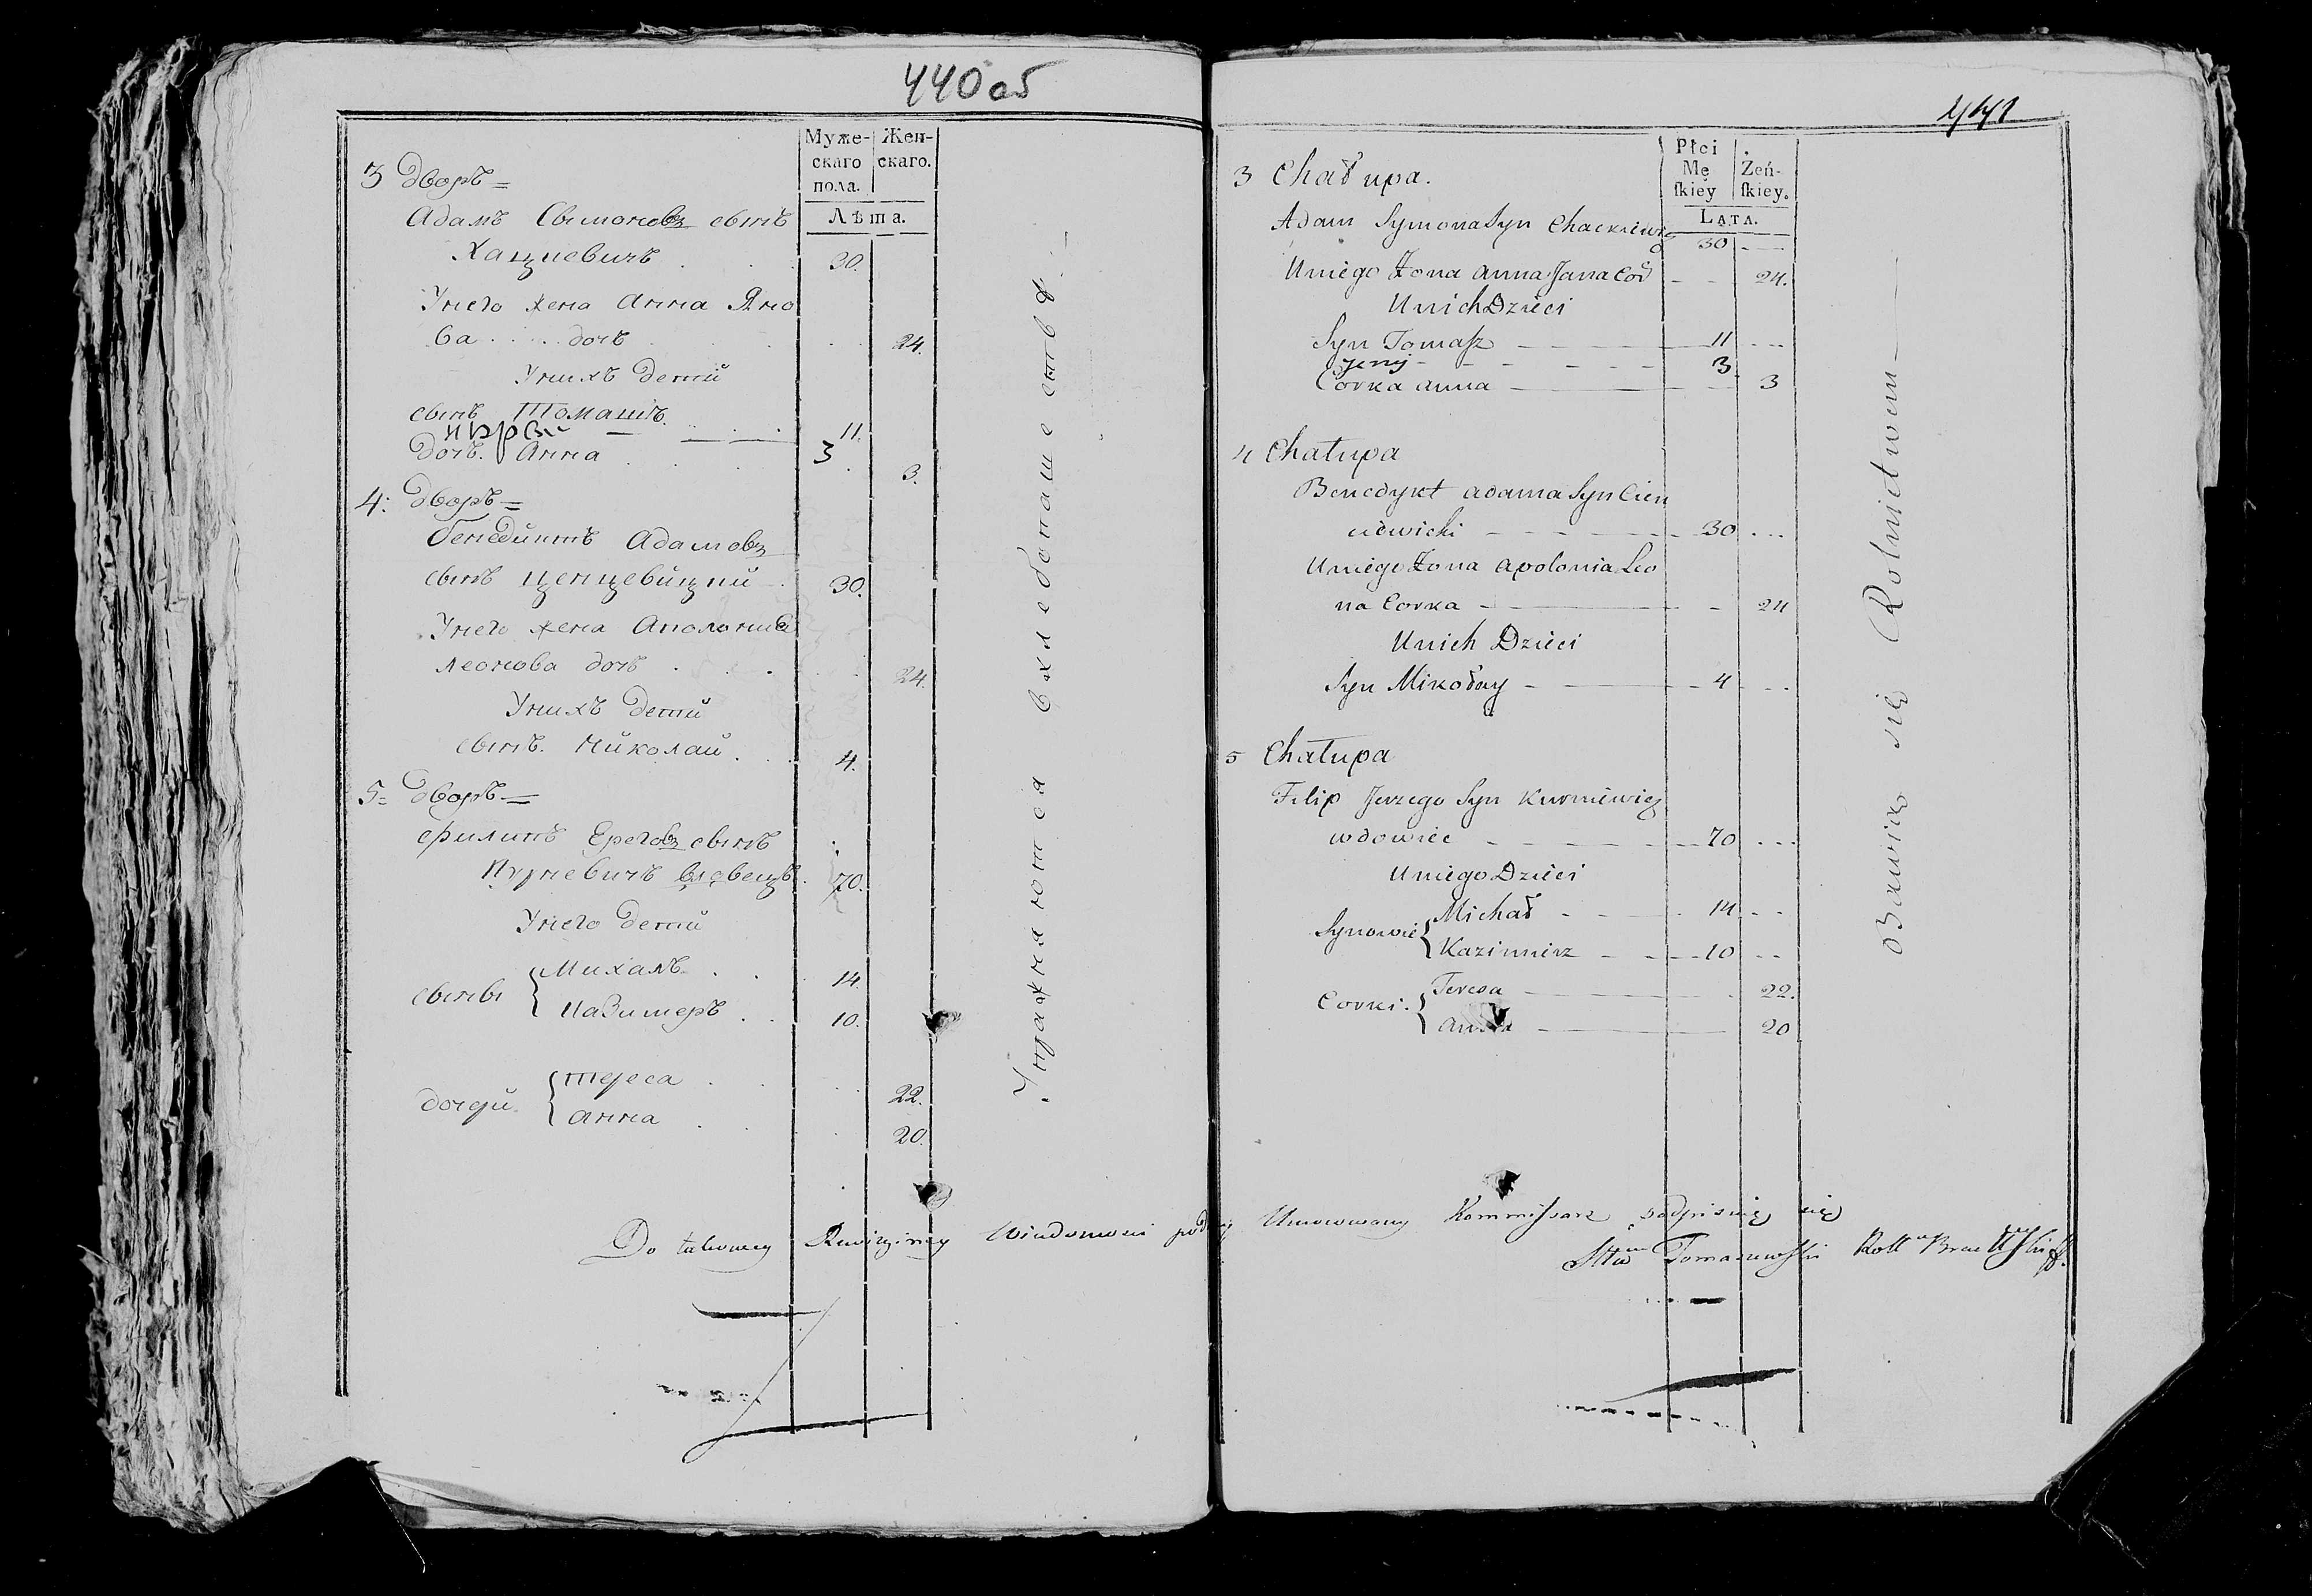 440 об
Муже-
скаго
пола.
Жен-
скаго.
Лѣта.
3 дворъ =
Адамъ Сымоновъ сынъ
Хацкевичъ . . 30.
У него жена Анна Яно
ва . . . дочь . . 24.
У нихъ детий
сынъ Томашъ . . 11.
дочь. Анна . . 3 . 3.
4: дворъ =
бенедиктъ Адамовъ
сынъ ценцевицкий . 30.
У него жена Аполониа
леонова дочь . . 24.
У нихъ детий
сынъ. Николай . . 4.
5 = дворъ =
филипъ Ереговъ сынъ
Курневичъ вдовецъ . 70.
У него детий
сыны { Михалъ . . 14.
Казимеръ . . 10.
дочери { тереса . . 22.
Анна . . 20.
Упражняются в хлебопашестве
441
Płci
Mę
ſkiéy
Żeń-
ſkiey.
LATA.
3 Chałupa.
Adam Symona Syn Chackiewicz 30
U niego Żona Anna Jana Cor 24.
U nich Dzieci
Syn Tomaſz 11
Jerzy 3
Corka Anna 3
4 Chałupa
Benedykt Adama Syn Cien
cewicki 30
U niego Żona Apolonia Leo
na Corka 24
U nich Dzieci
Syn Mikołay 4
5 Chałupa
Filip Jerzego Syn Kurniewicz
wdowiec 70
U niego Dzieci
Synowie { Michał 14
Kazimierz 10
Corki. { Teresa 22.
Anna 20
Bawią się Rolnictwem
Do takowey Rewizyiney Wiadomosci podług Umocowany Kommiſsarz podpisuię się
Tomaszewſki